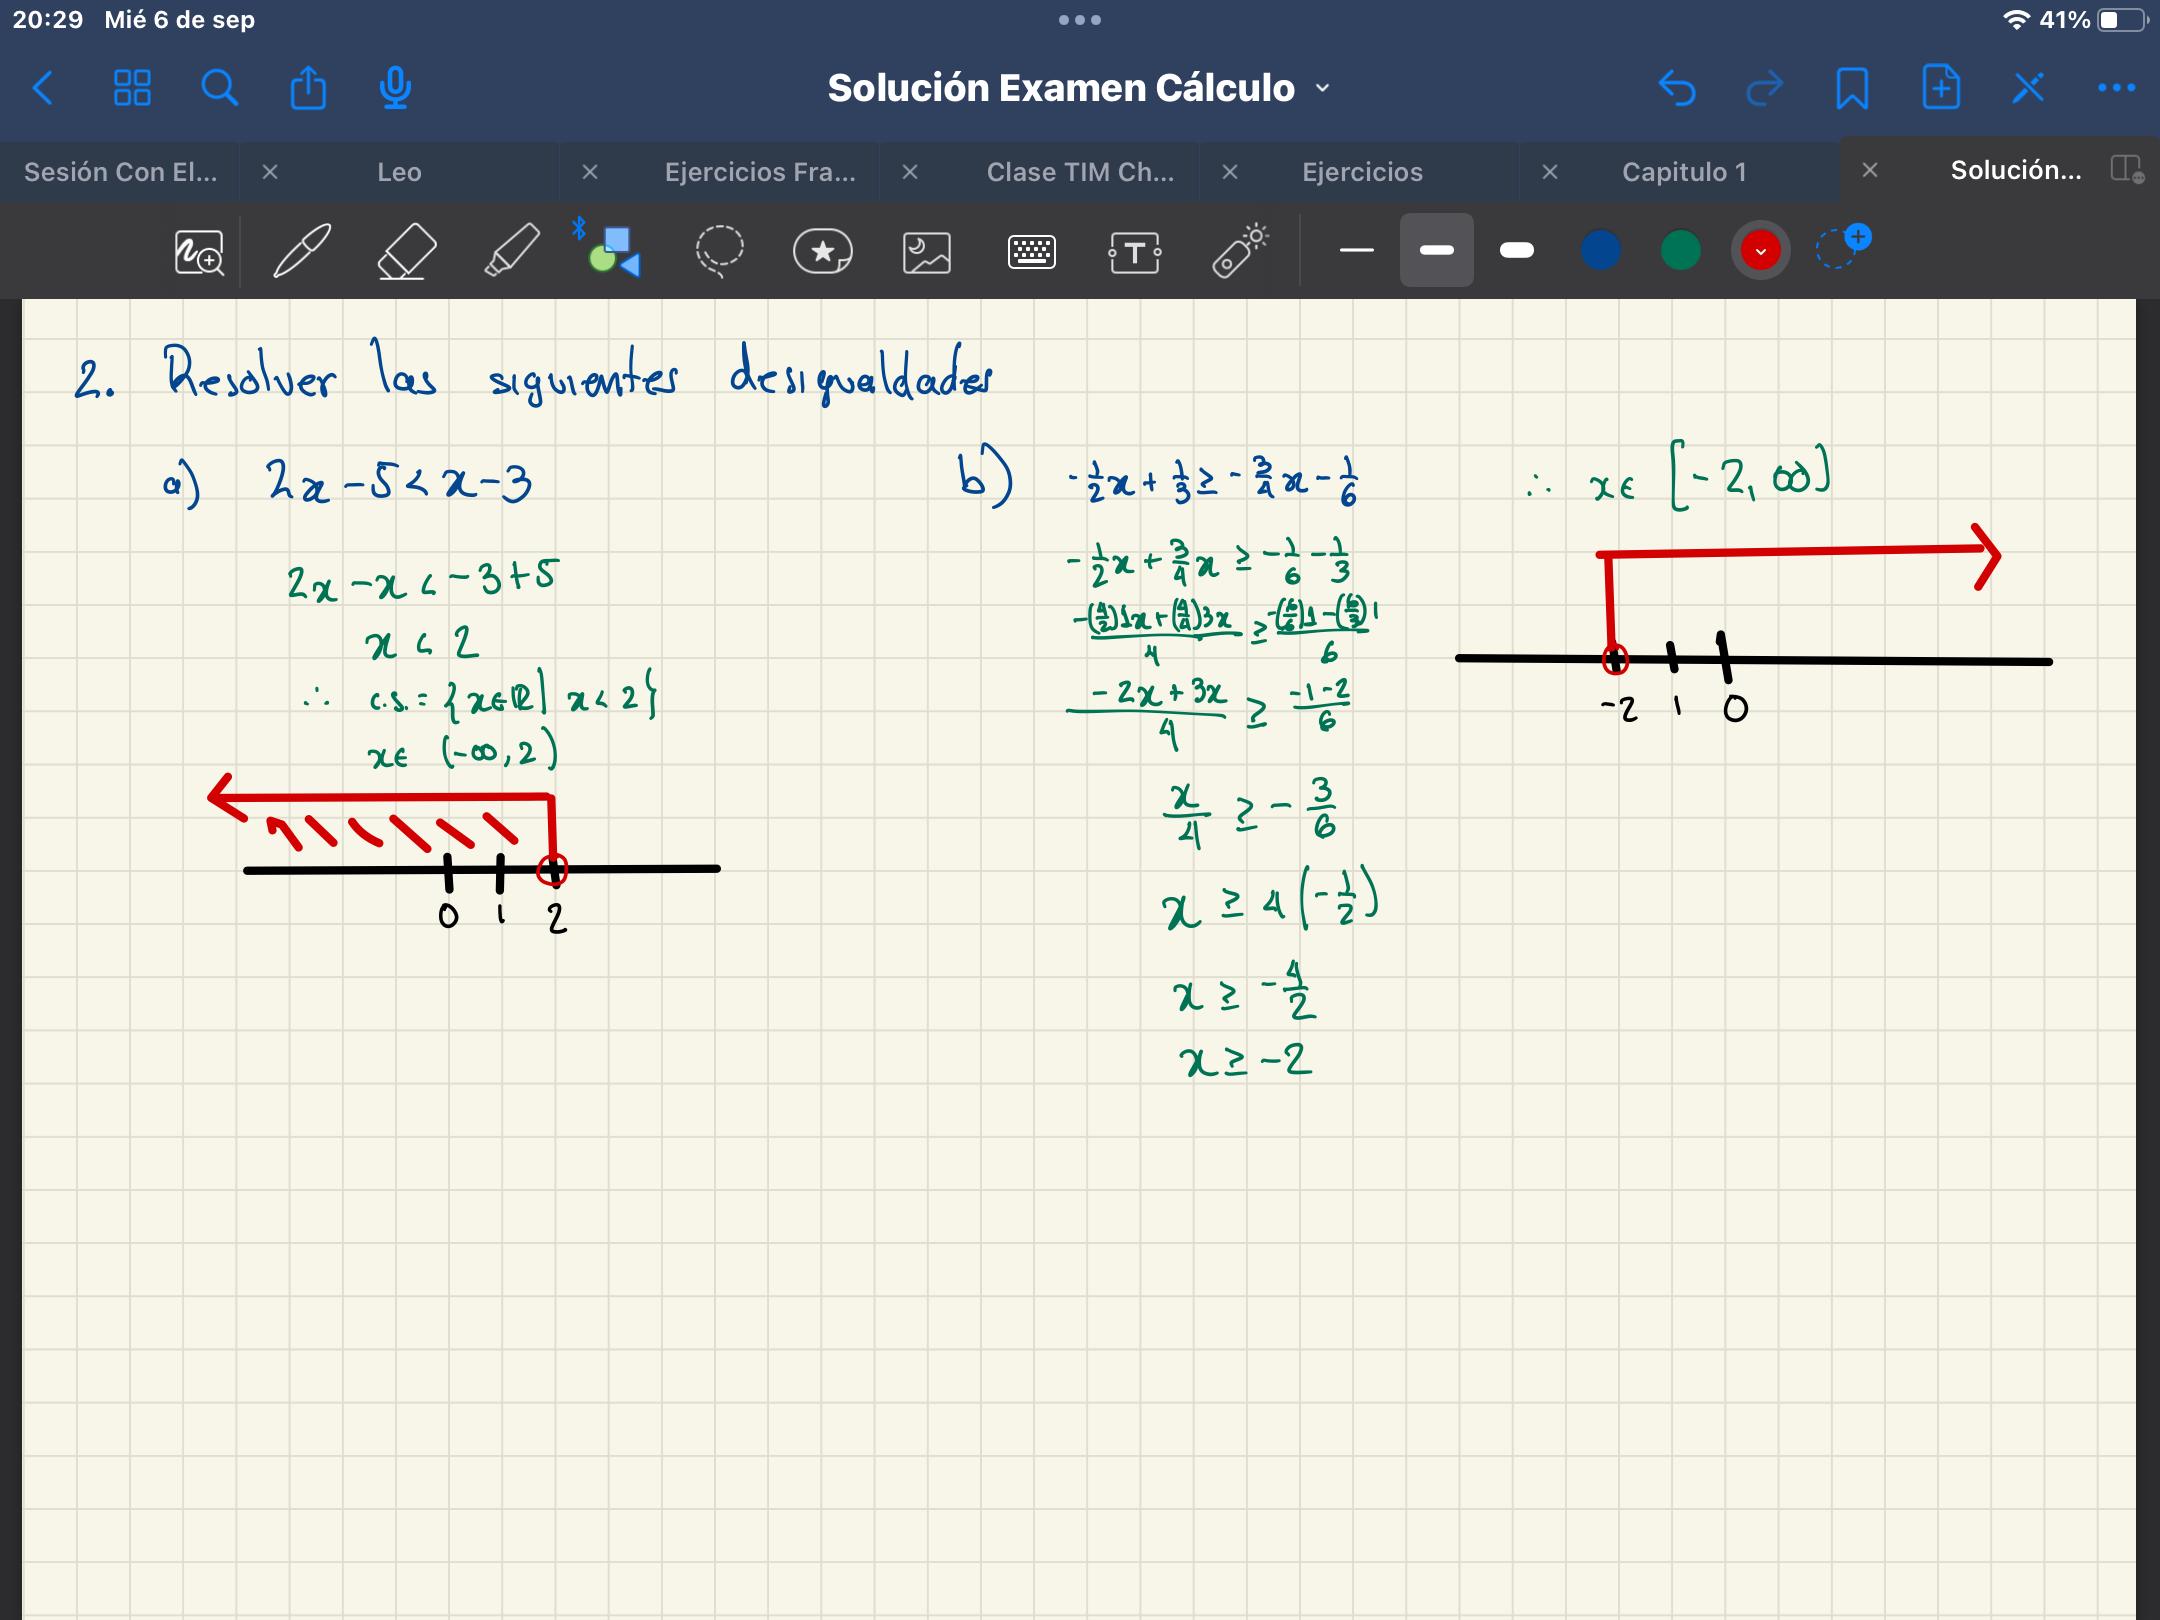 20:29 Mié 6 de sep 41%
Solución Examen Cálculo
Sesión Con El... Leo Ejercicios Fra... Clase TIM Ch... Ejercicios Capitulo 1 Solución...
2. Resolver las siguientes desigualdades
a) 2x - 5 < x - 3
2x - x < -3 + 5
x < 2
∴ c.s. = {x ∈ ℝ | x < 2}
x ∈ (-∞, 2)
0 1 2
b) -1/2 x + 1/3 ≥ -3/4 x - 1/6
-1/2 x + 3/4 x ≥ -1/6 - 1/3
(-(4/2)1x + (4/4)3x)/4 ≥ (-(6/6)1 - (6/3)1)/6
(-2x + 3x)/4 ≥ (-1-2)/6
x/4 ≥ -3/6
x ≥ 4(-1/2)
x ≥ -4/2
x ≥ -2
∴ x ∈ [-2, ∞)
-2 1 0